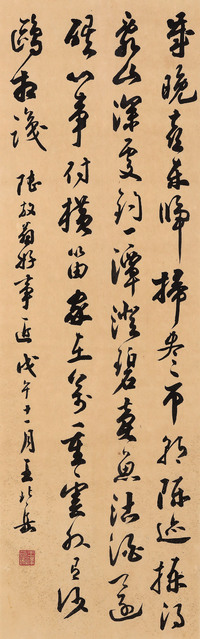 歲晚喜東歸掃盡市朝陳迹揀得
亂山深處釣一潭澄碧賣魚沽酒還
醒心事付橫笛家在萬重雲外有沙
鷗相識 陸放翁好事近 戊午十一月王北岳